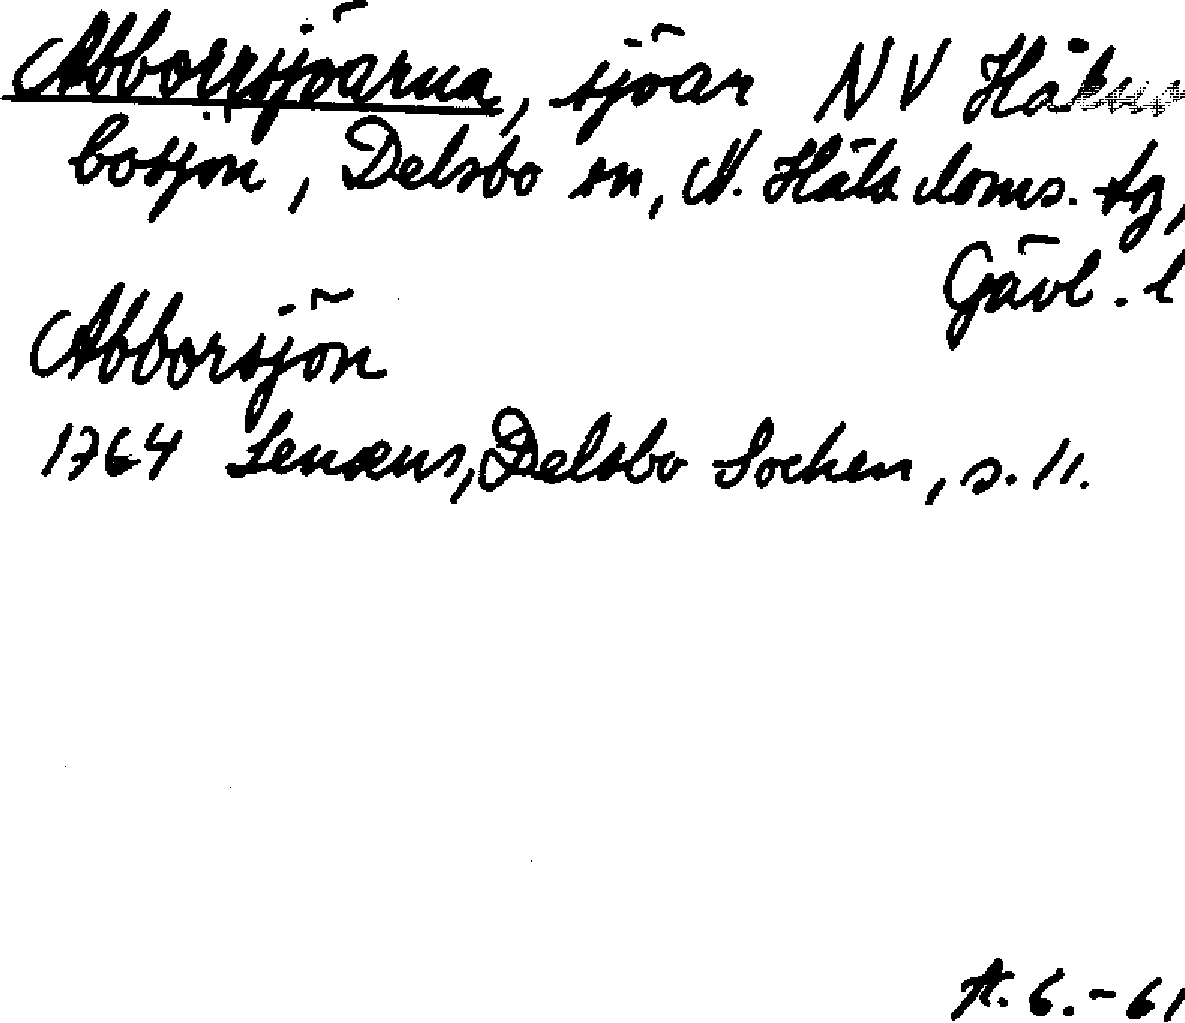 Abborrsjöarna, sjöar NV Håkns
bosjön, Delsbo sn, N. Häls. doms. tg,
Gävl. l
Abborsjön
1764 Lenæus, Delsbo Socken, s. 11.
A. 6.-61